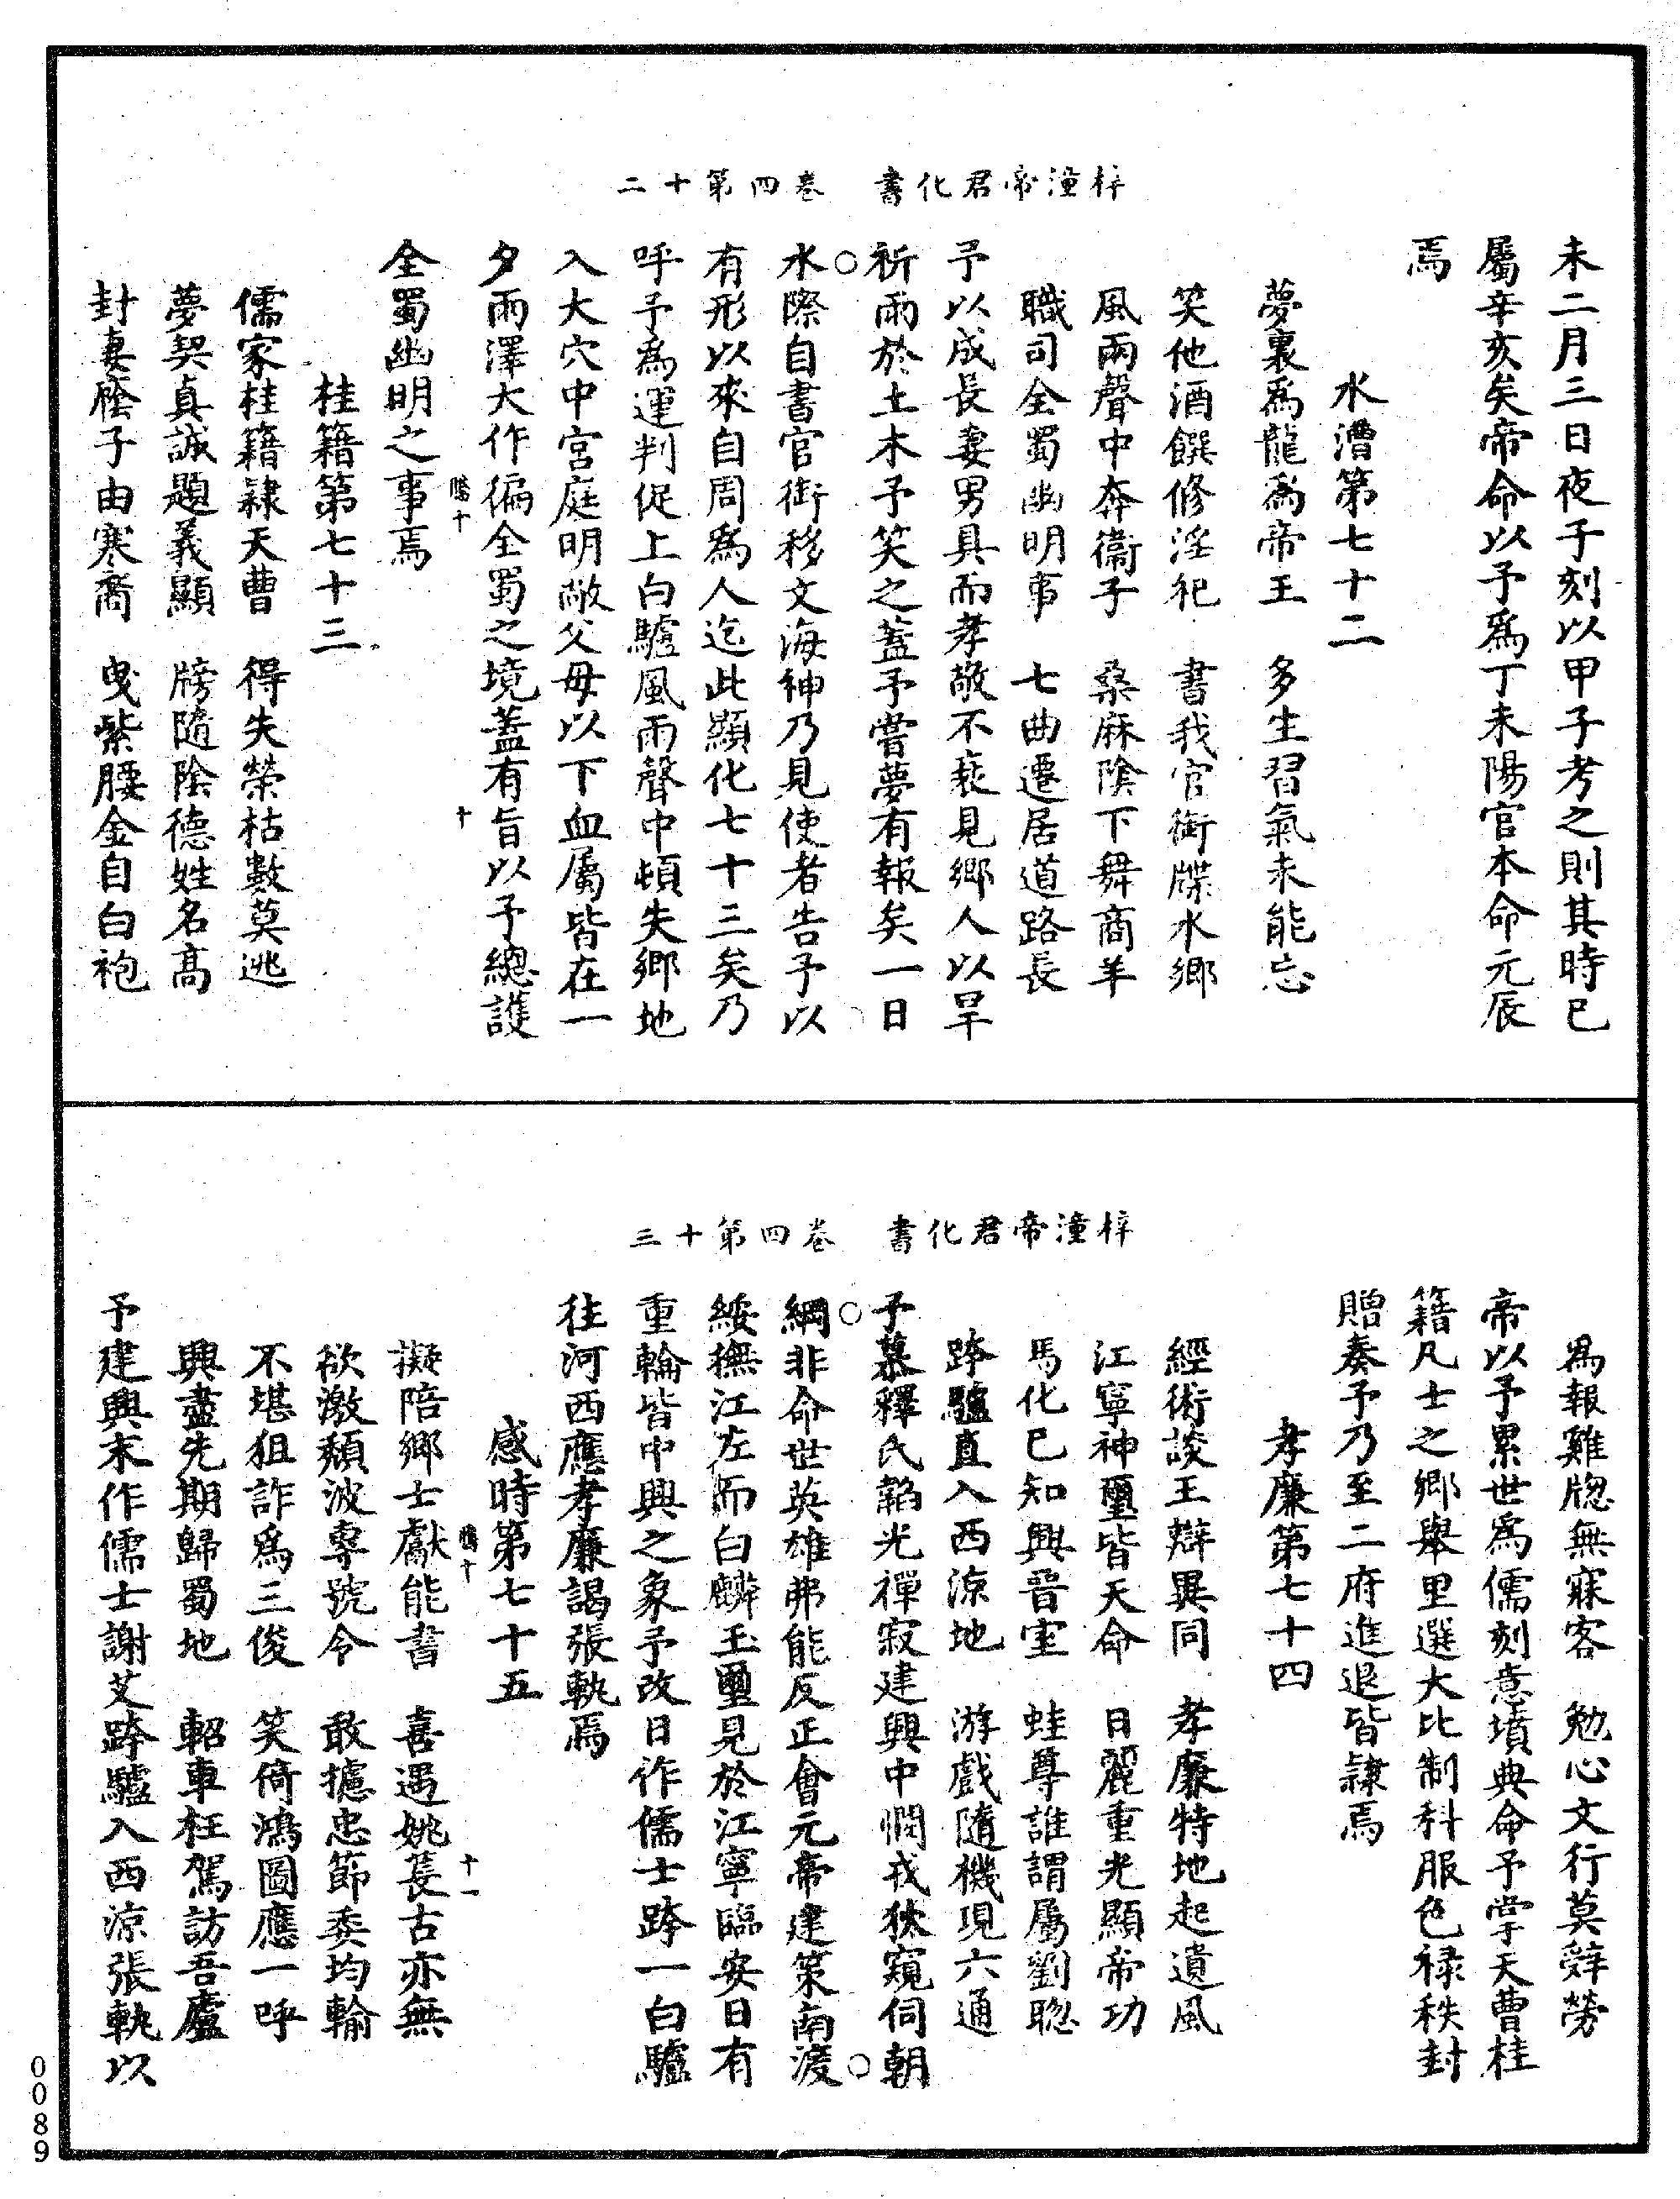 梓潼帝君化書　卷四第十二
未二月三日夜子刻以甲子考之則其時已
屬辛亥矣帝命以予為丁未陽官本命元辰
焉
水漕第七十二
夢裏為龍為帝王　多生習氣未能忘
笑他酒饌修淫祀　書我官銜牒水鄉
風雨聲中奔衞子　桑麻陰下舞商羊
職司全蜀幽明事　七曲遷居道路長
予以成長妻男具而孝敬不衰見鄉人以旱
祈雨於土木予笑之蓋予嘗夢有報矣一日
水際自書官銜移文海神乃見使者告予以
有形以來自周為人迄此顯化七十三矣乃
呼予為運判促上白驢風雨聲中頓失鄉地
入大穴中宮庭明敞父母以下血屬皆在一
夕雨澤大作徧全蜀之境蓋有旨以予總護
全蜀幽明之事焉
桂籍第七十三
儒家桂籍隸天曹　得失榮枯數莫逃
夢契真誠題義顯　牓隨陰德姓名高
封妻廕子由寒裔　曳紫腰金自白袍
騰十
十
梓潼帝君化書　卷四第十三
為報雞牕無寐客　勉心文行莫辭勞
帝以予累世為儒刻意墳典命予掌天曹桂
籍凡士之鄉舉里選大比制科服色祿秩封
贈奏予乃至二府進退皆隸焉
孝廉第七十四
經術談王辯異同　孝廉特地起遺風
江寧神璽皆天命　日麗重光顯帝功
馬化已知興晉室　蛙尊誰謂屬劉聰
跨驢直入西涼地　游戲隨機現六通
予慕釋氏韜光禪寂建興中憫戎狄窺伺朝
綱非命世英雄弗能反正會元帝建策南渡
綏撫江左而白麟玉璽見於江寧臨安日有
重輪皆中興之象予改日作儒士跨一白驢
往河西應孝廉謁張軌焉
感時第七十五
擬陪鄉士獻能書　喜遇姚萇古亦無
欲激頹波專號令　敢攄忠節委均輸
不堪狙詐為三俊　笑倚鴻圖應一呼
興盡先期歸蜀地　軺車枉駕訪吾廬
予建興末作儒士謝艾跨驢入西涼張軌以
騰十
十一
0089